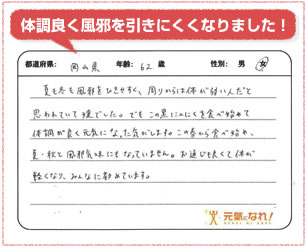 体調良く風邪を引きにくくなりました！
都道府県: 岡山県 年齢: 62 歳 性別: 男 女
夏も冬も風邪をひきやすく、周りからは体が弱い人だと
思われていて嫌でした。でもこの黒にんにくを食べ始めて
体調が良く元気になった気がします。この春から食べ始め、
夏・秋と風邪気味にもなっていません。お通じも良くて体が
軽くなり、みんなに勧めています。
元気になれ！
GENKI NI NARE!